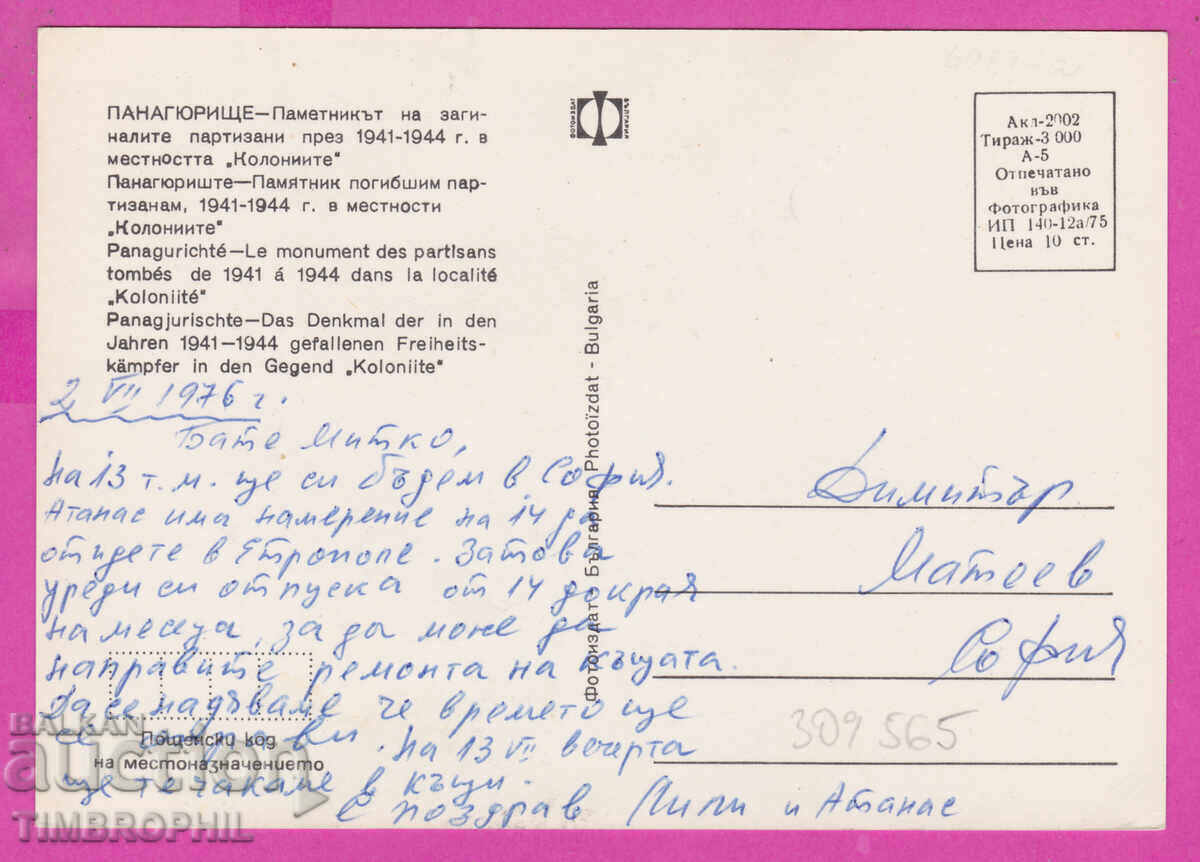 ПАНАГЮРИЩЕ—Паметникът на заги-
налите партизани през 1941-1944 г. в
местността „Колониите“
Панагюриште—Памятник погибшим пар-
тизанам, 1941-1944 г. в местности
„Колониите“
Panagurichté—Le monument des partisans
tombés de 1941 á 1944 dans la localité
„Koloniité“
Panagjurischte—Das Denkmal der in den
Jahren 1941—1944 gefallenen Freiheits-
kämpfer in den Gegend „Koloniite“
ФОТОИЗДАТ
БЪЛГАРИЯ
Акл-2002
Тираж-3 000
А-5
Отпечатано
във
Фотографика
ИП 140-12а/75
Цена 10 ст.
Фотоиздат България Photoïzdat - Bulgaria
2 VII 1976 г.
Бате Митко,
на 13 т.м. ще си бъдем в София.
Атанас има намерение на 14 да
отидете в Етрополе. Затова
уреди си отпуска от 14 до края
на месеца, за да може да
направите ремонта на къщата.
Да се надяваме че времето ще
се оправи. На 13 VII вечерта
ще те чакаме в къщи.
С поздрав Лили и Атанас
Димитър
Матеев
София
309565
Пощенски код
на местоназначението
BALKAN
auction
TIMBROPHIL